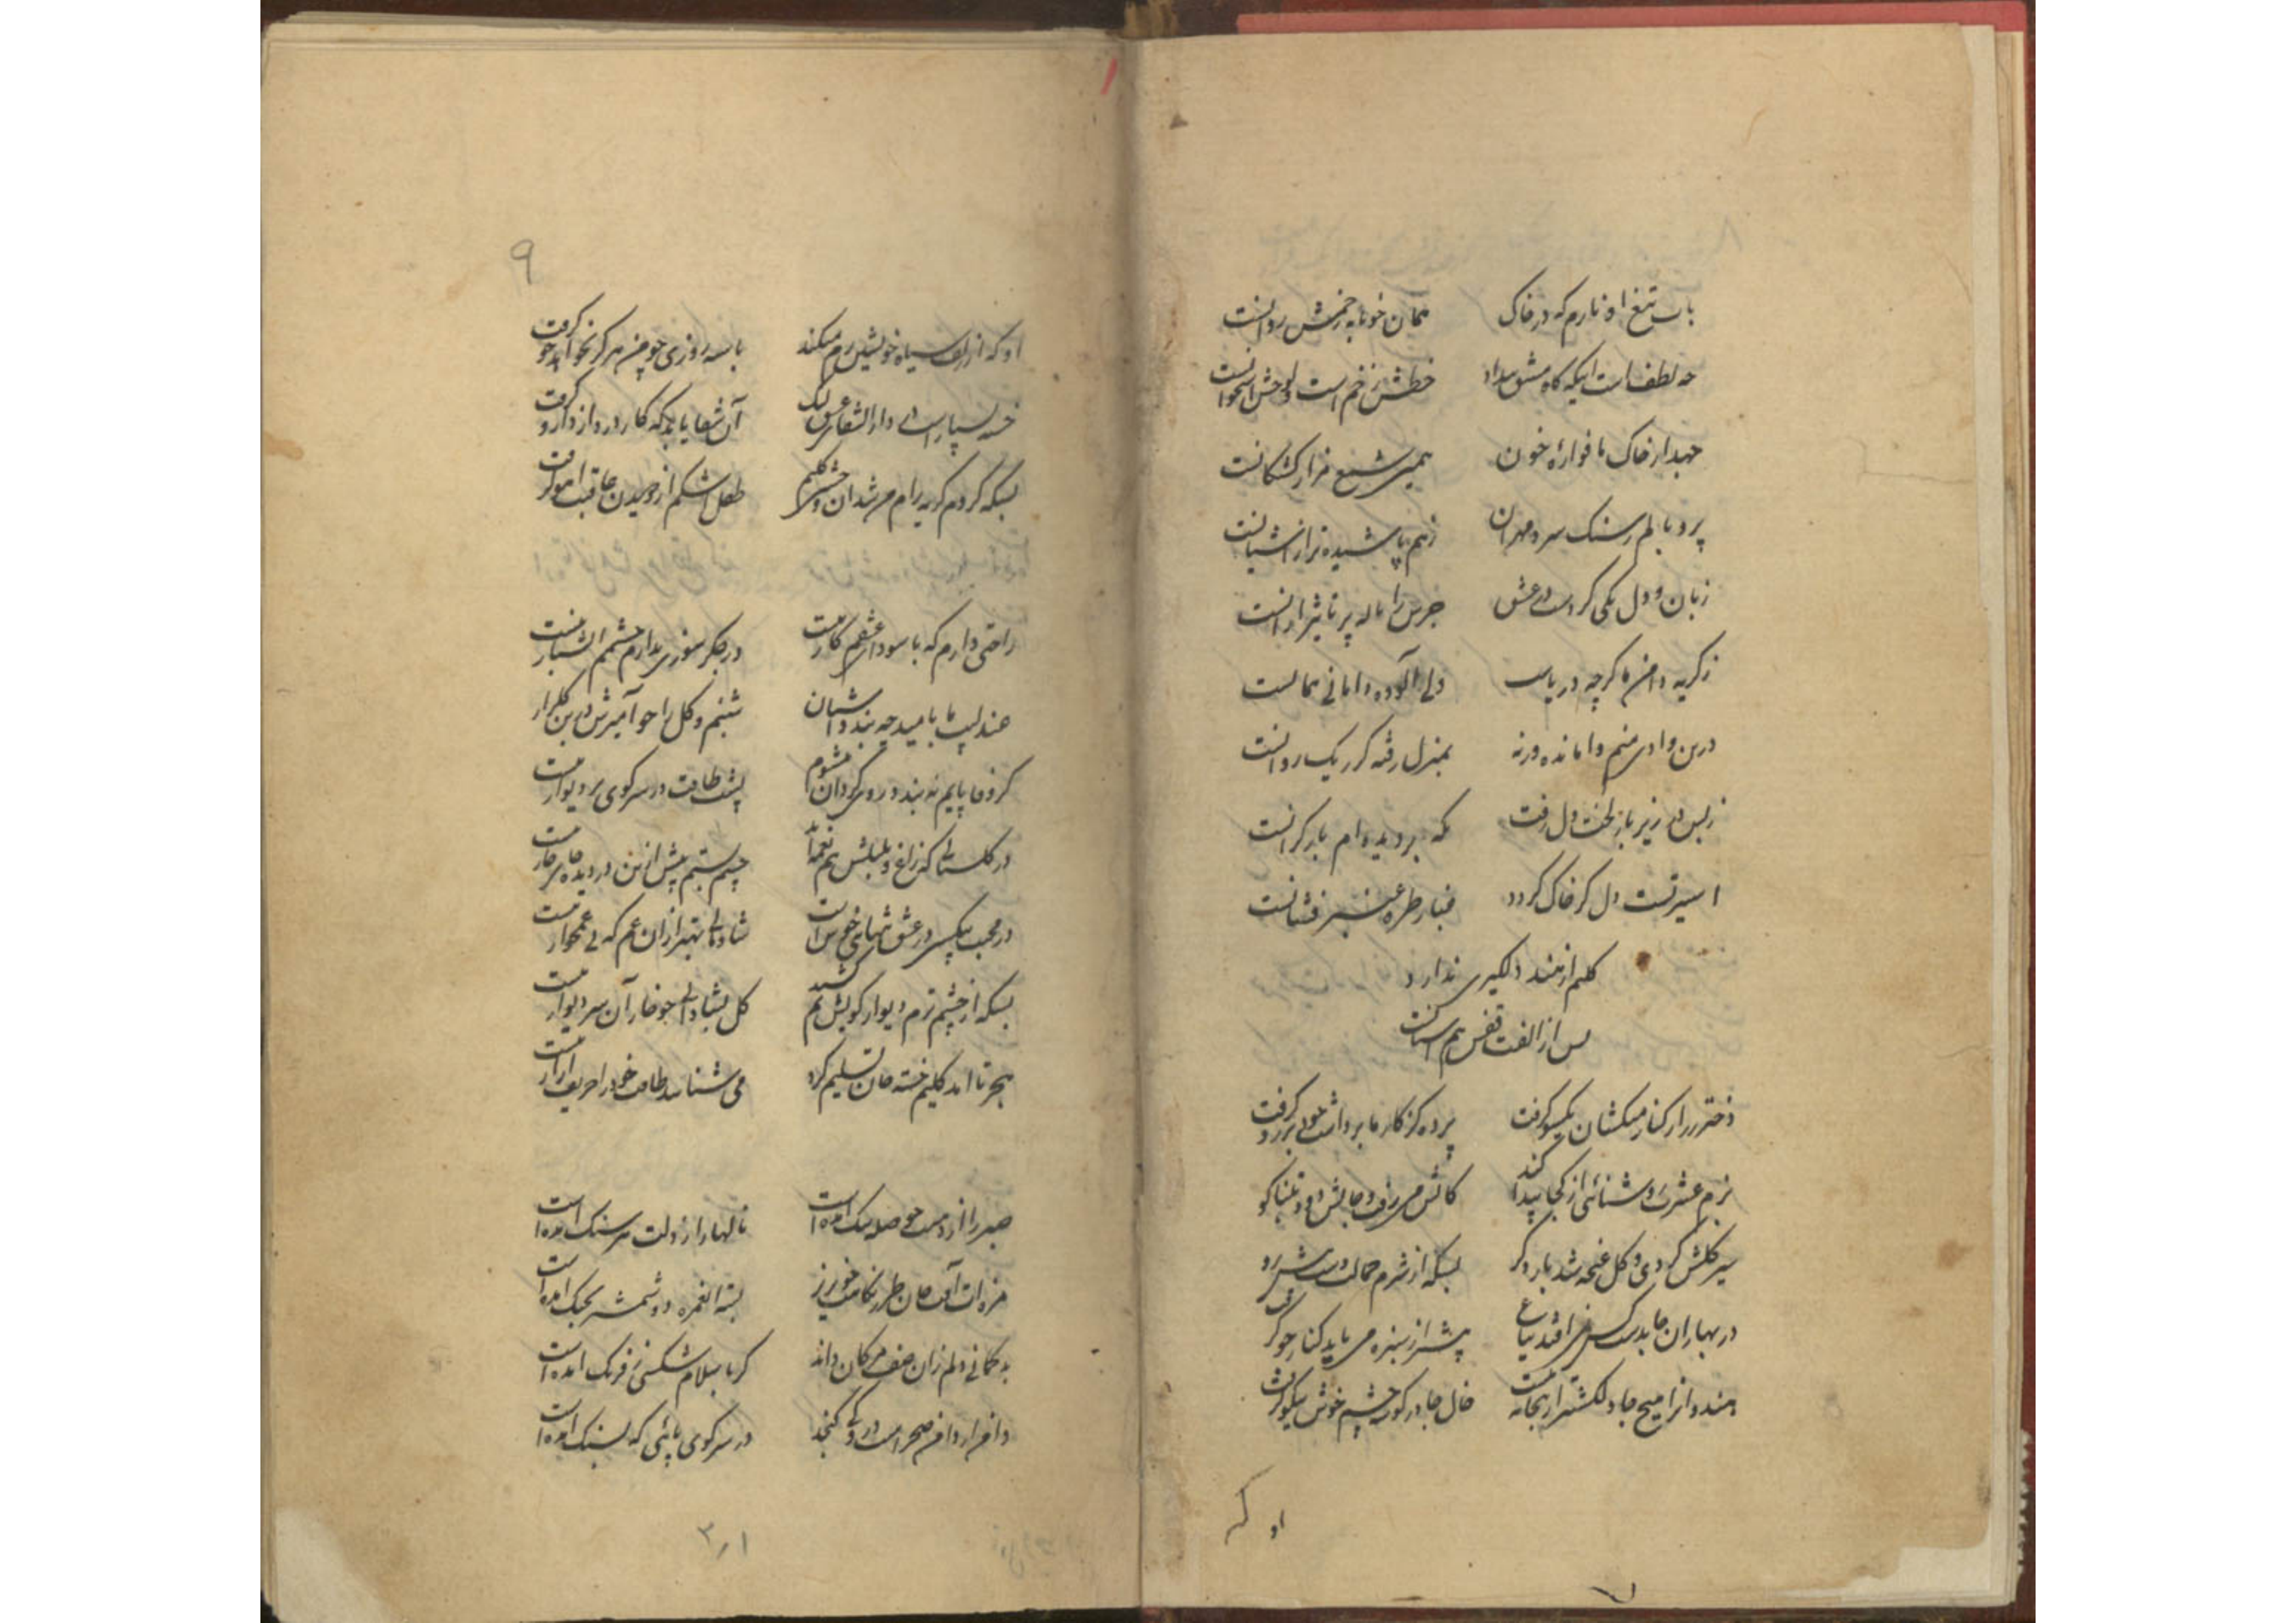 باب تیغ او نازم که در خاک همان خونابه زخمش روانست
چه لطفست اینکه گاه مشق بیداد خطش زخم است و لوحش استخوانست
جهد از خاک ما فواره خون همین شمع مزار کشتکانست
پر و بالم ز سنک سرد مهران ز هم پاشیده‌تر از آشیانست
زبان و دل یکی کن در عشق جرس را ناله پر تاثیر ازانست
ز کریه دامن ما کرچه دریاست ولی آلوده دامانی همانست
درین وادی منم وامانده ورنه بمنزل رفته کر ریک روانست
ز بس در زیر بار لخت دل رفت نکه بر دیده‌ام بار کرانست
اسیر تست دل کر خاک کردد غبار طره عنبر فشانست
کلیم از هند دلکیری ندارد
پس از الفت قفس هم آشیانست
دختر رز از کنار میکشان یکسو کرفت پرده کز کار ما برداشت خود بر رو کرفت
بزم عشرت روشنائی از کجا پیدا کند کاتش می رفت و جایش دود تنباکو
سیر کلشن کردی و کل غنچه شد بار دکر بسکه از شرم جمالت دست پیش رو
در بهاران جا بدست کس نمی افتد بباغ پیشتر از سبزه می باید کنار جو کرفت
هندوانرا میح جا دلکشتر از بتخانه نیست خال جا در کوشه چشم خوش نیکو کرفت
او که
۹
او که از زلف سیاه خویشتن رم میکند با سیه روزی چو من هرکز نخواهد خو کرفت
خسته بسیار است در دارالشفای عشق لیک آن شفا یابد که کار درد از دارو کرفت
بسکه کردم کریه رام من شد آن وحشی کلیم طفل اشکم از دویدن عاقبت آهو کرفت
راحتی دارم که با سودای عشقم کار نیست در جکر سوزی ندارم چشمم اتشبار نیست
عندلیب ما بامید چه بندد آشیان شبنم و کل را چو آمیزش درین کلزار
کر وفا پایم نه بندد روی کردان میشوم پشت طاقت در سر کوی بر دیوار نیست
در کلستانی که زاغ و بلبلش هم نغمه‌اند چشم بستم پیش ازین در دیده جای خار نیست
در محبت بیکسی در عشق تنهایی خوش است شادمانی بهتر از آن غم که بی غمخوار نیست
بسکه از چشم ترم دیوار کویش نم کشید کل بشادابی چو خار آن سر دیوار نیست
هجر تا آمد کلیم خسته جان تسلیم کرد می شناسد طاقت خود را حریف آزار نیست
صبر را از درد من حوصله تنک آمده است نالها را ز دلت سر بسنک آمده است
مژه‌ات آفت جان طرز نکاهت خونریز بسته آن غمزه دو شمشیر بجنک آمده است
بد کمانی دلم زان صف مژکان داند کز باسلام شکستی ز فرنک آمده است
دامن ار دامن صحراست درو کی کنجد در سر کوی پائی که بسنک آمده است